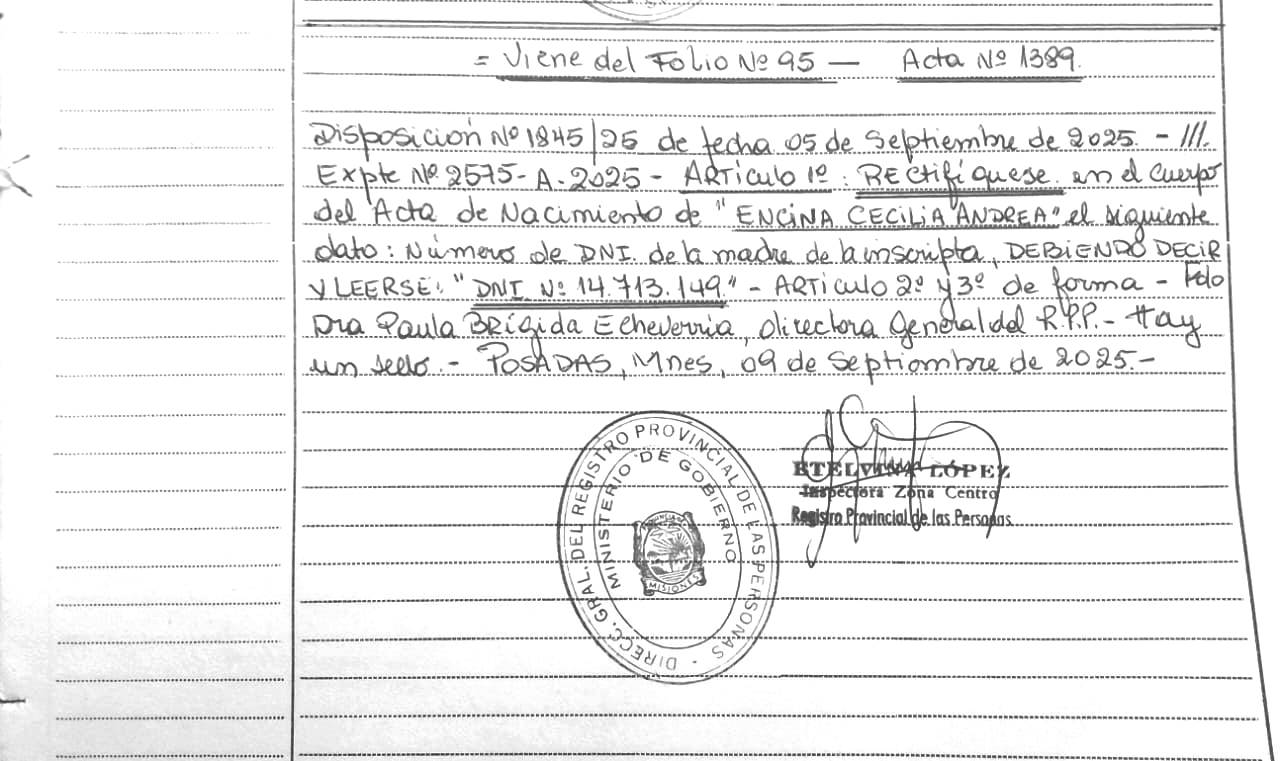 = Viene del Folio Nº 95 — Acta Nº 1389.
Disposición Nº 1845/25 de fecha 05 de Septiembre de 2025. - ///.
Expte Nº 2575-A-2025 - ARTículo 1º: RECtifíquese en el Cuerpo
del Acta de Nacimiento de "ENCINA CECILIA ANDREA" el siguiente
dato: Número de DNI. de la madre de la inscripta, DEBIENDO DECIR
Y LEERSE: "DNI Nº 14.713.149." - ARTículo 2º y 3º de forma - Fdo
Dra Paula BRígida Echeverria, directora General del R.P.P. - Hay
un sello. - POSADAS, Mnes, 09 de Septiembre de 2025.-
DIRECC. GRAL. DEL REGISTRO PROVINCIAL DE LAS PERSONAS -
MINISTERIO DE GOBIERNO
MISIONES
ETELVINA LÓPEZ
Inspectora Zona Centro
Registro Provincial de las Personas